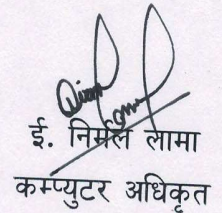 ई. निर्मल लामा
कम्प्युटर अधिकृत